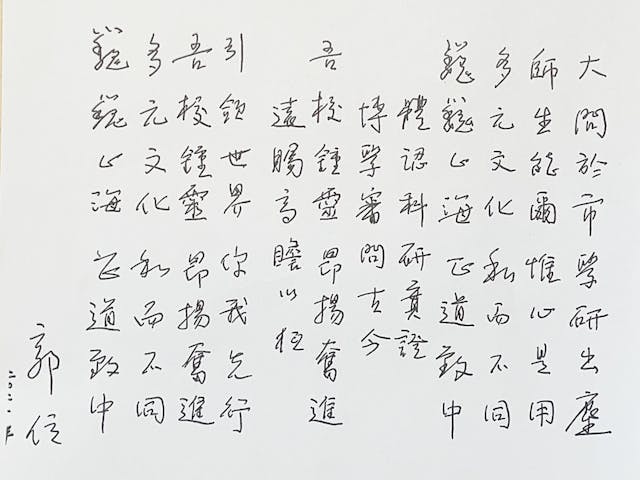 大閙於市學研出塵
師生能爾惟心是用
多元文化和而不同
巍巍心海正道致中
體認科研實證
博學審問古今
吾校鍾靈昂揚奮進
遠矚高瞻以恆
引領世界你我先行
吾校鍾靈昂揚奮進
多元文化和而不同
巍巍心海正道致中
郭位